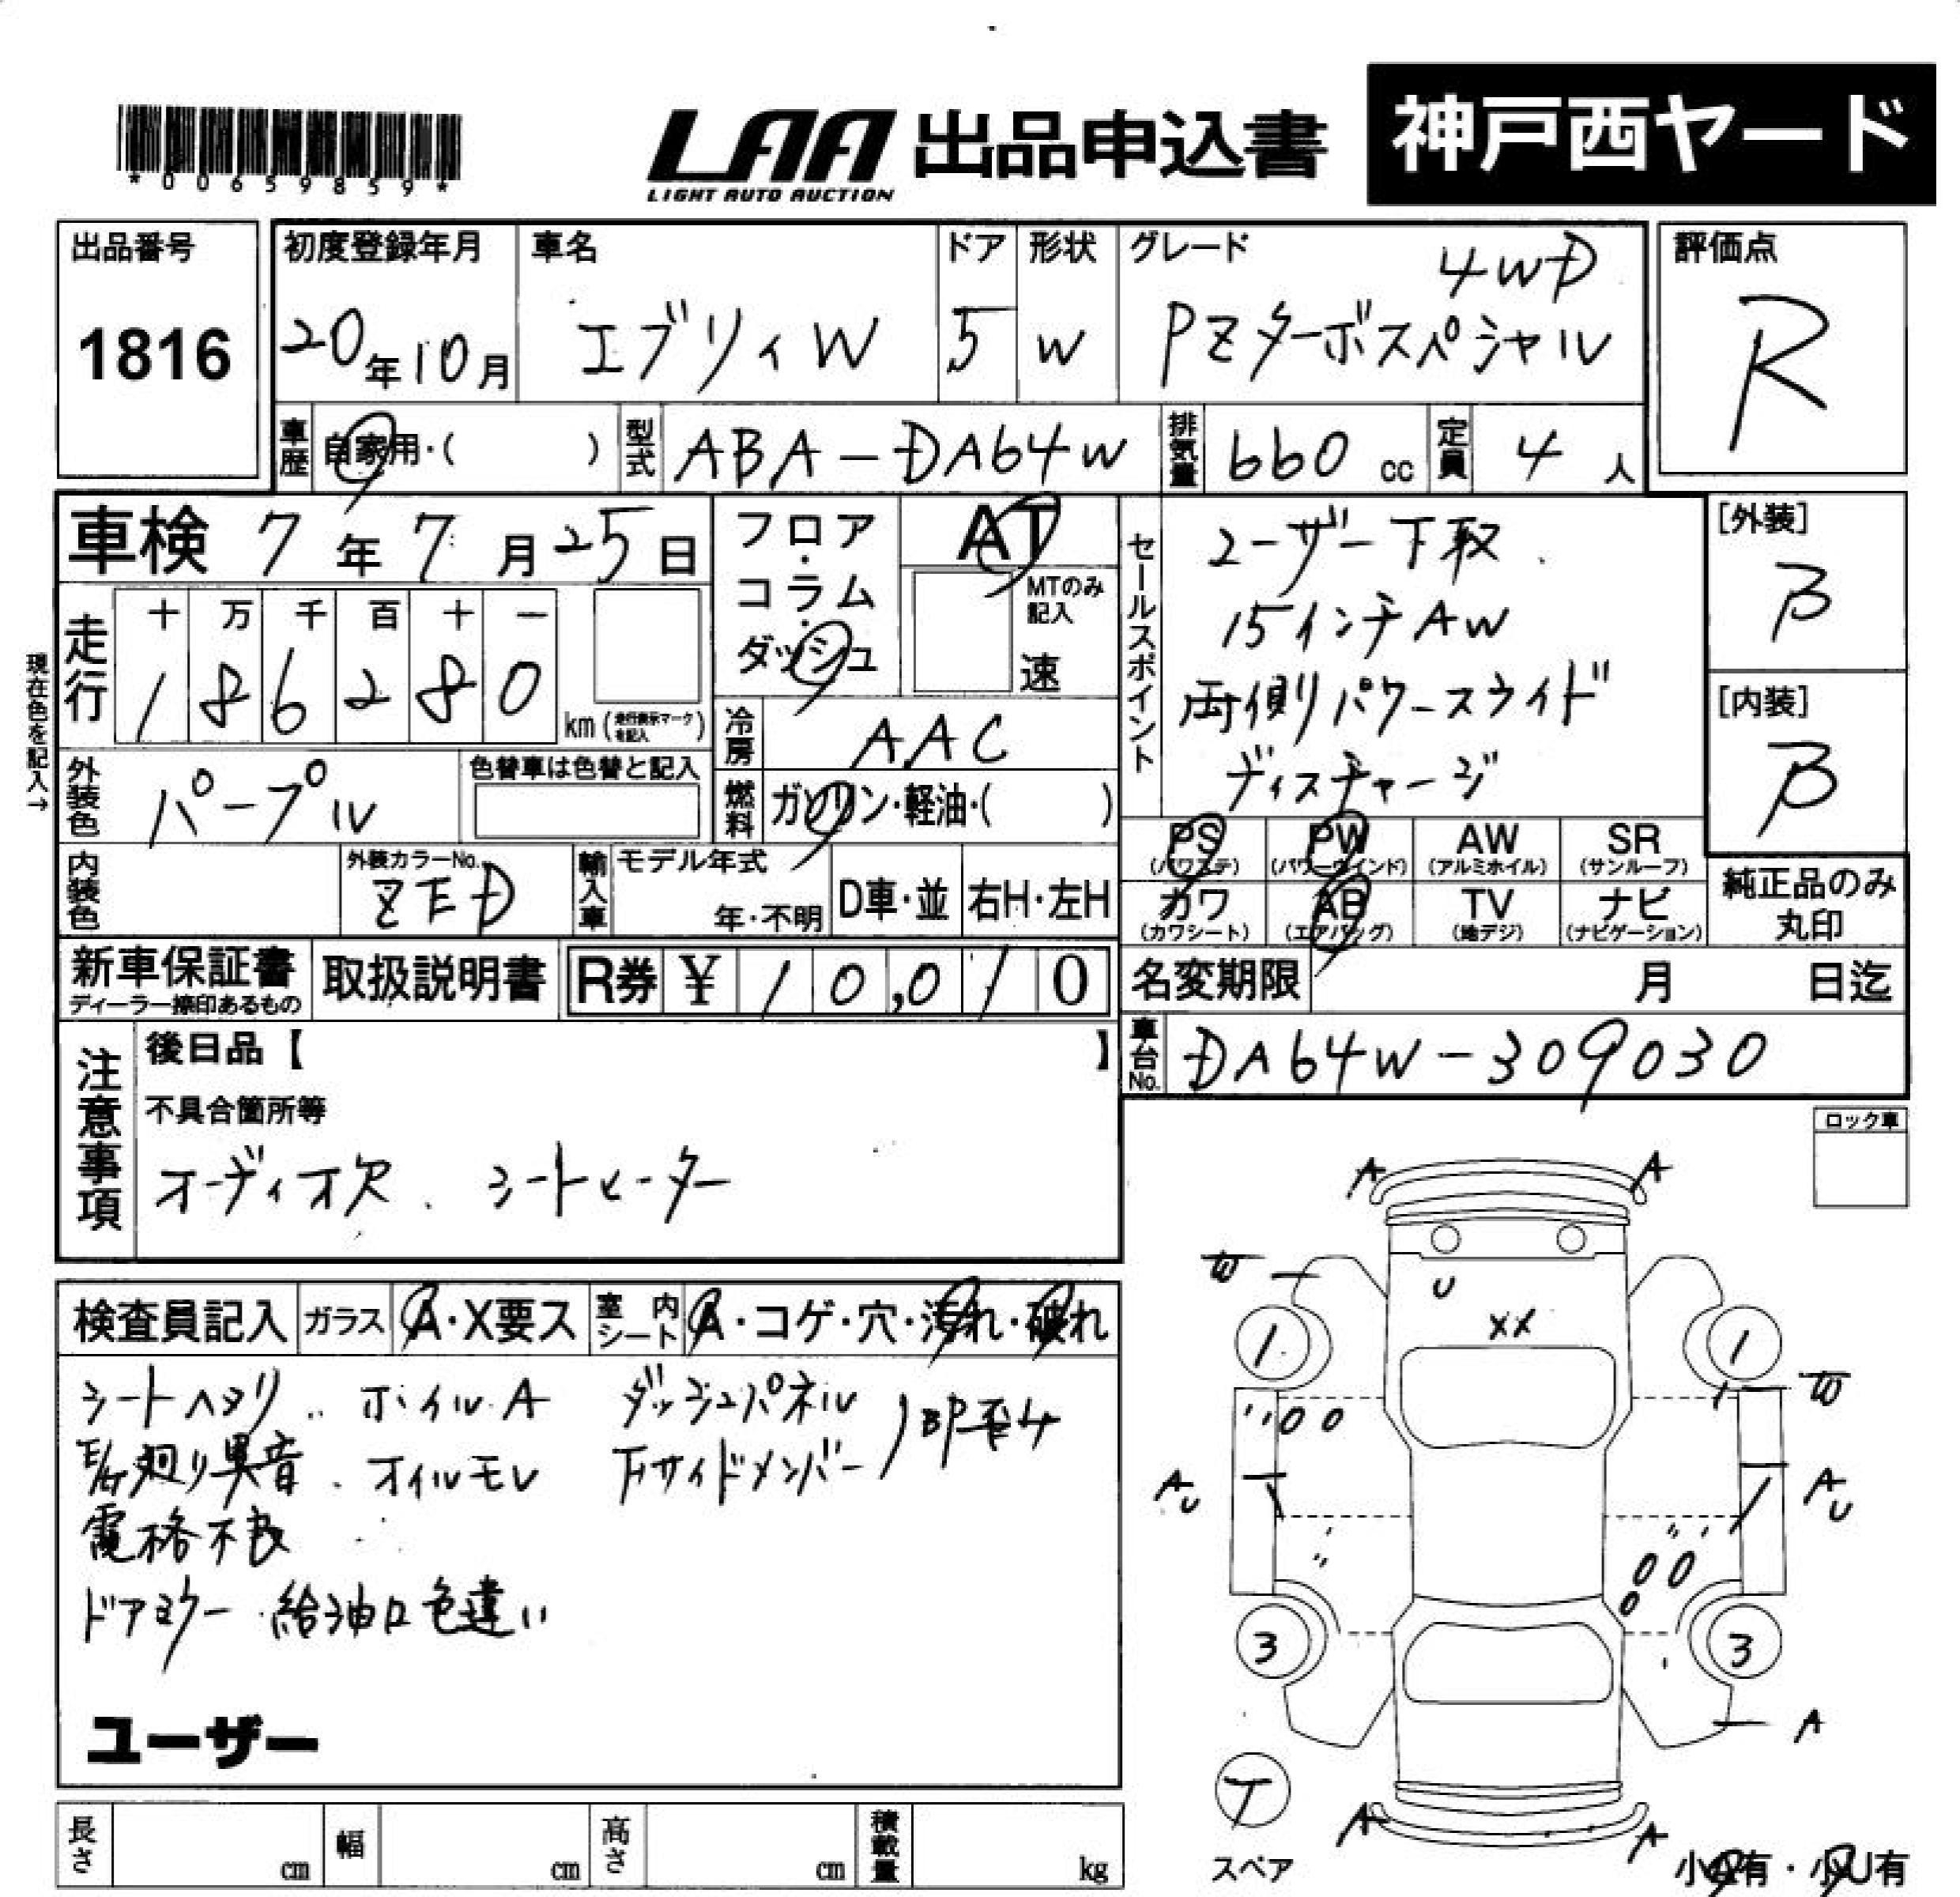 *00659859*
LAA 出品申込書 神戸西ヤード
LIGHT AUTO AUCTION
出品番号
1816
初度登録年月
20年10月
車名
エブリィW
ドア
5
形状
W
グレード
4WD
PZターボスペシャル
評価点
R
車歴 自家用・( )
型式 ABA-DA64W
排気量 660 cc
定員 4 人
車検 7年7月25日
フロア・コラム・ダッシュ
AT
MTのみ記入
速
セールスポイント
ユーザー下取
15インチAW
両側パワースライド
ディスチャージ
[外装]
B
[内装]
B
現在色を記入→
走行
十 万 千 百 十 一
1 8 6 2 8 0
km(走行表示マークを記入)
冷房 AAC
外装色 パープル
色替車は色替と記入
燃料 ガソリン・軽油・( )
PS (パワステ)
PW (パワーウインド)
AW (アルミホイル)
SR (サンルーフ)
内装色
外装カラーNo.
ZED
輸入車
モデル年式
年・不明
D車・並
右H・左H
カワ (カワシート)
AB (エアバッグ)
TV (地デジ)
ナビ (ナビゲーション)
純正品のみ丸印
新車保証書
ディーラー捺印あるもの
取扱説明書
R券 ¥ 10,010
名変期限 月 日迄
車台No. DA64W-309030
注意事項
後日品【 】
不具合箇所等
オーディオ欠 . シートヒーター
ロック車
検査員記入
ガラス A・X要ス
室内シート A・コゲ・穴・汚れ・破れ
シートヘタリ . ホイルA ダッシュパネル
E/G廻り異音 . オイルモレ 下サイドメンバー 部歪み
電格不良
ドアミラー . 給油口色違い
ユーザー
A A
W
U
XX
1 1
W
AU AU
3 3
A
T
スペア
A A
小A有・小U有
長さ cm
幅 cm
高さ cm
積載量 kg